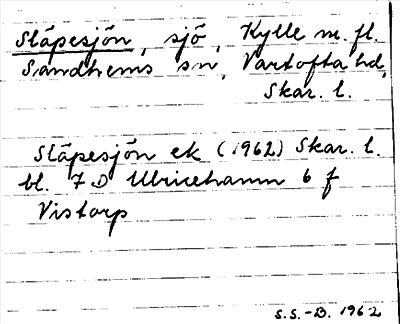 Släpesjön, sjö, Kylle m. fl.
Sandhems sn, Vartofta hd,
Skar. l.
Släpesjön ek (1962) Skar. l.
bl. 7 D Ulricehamn 6 f
Vistorp
S.S.-B. 1962